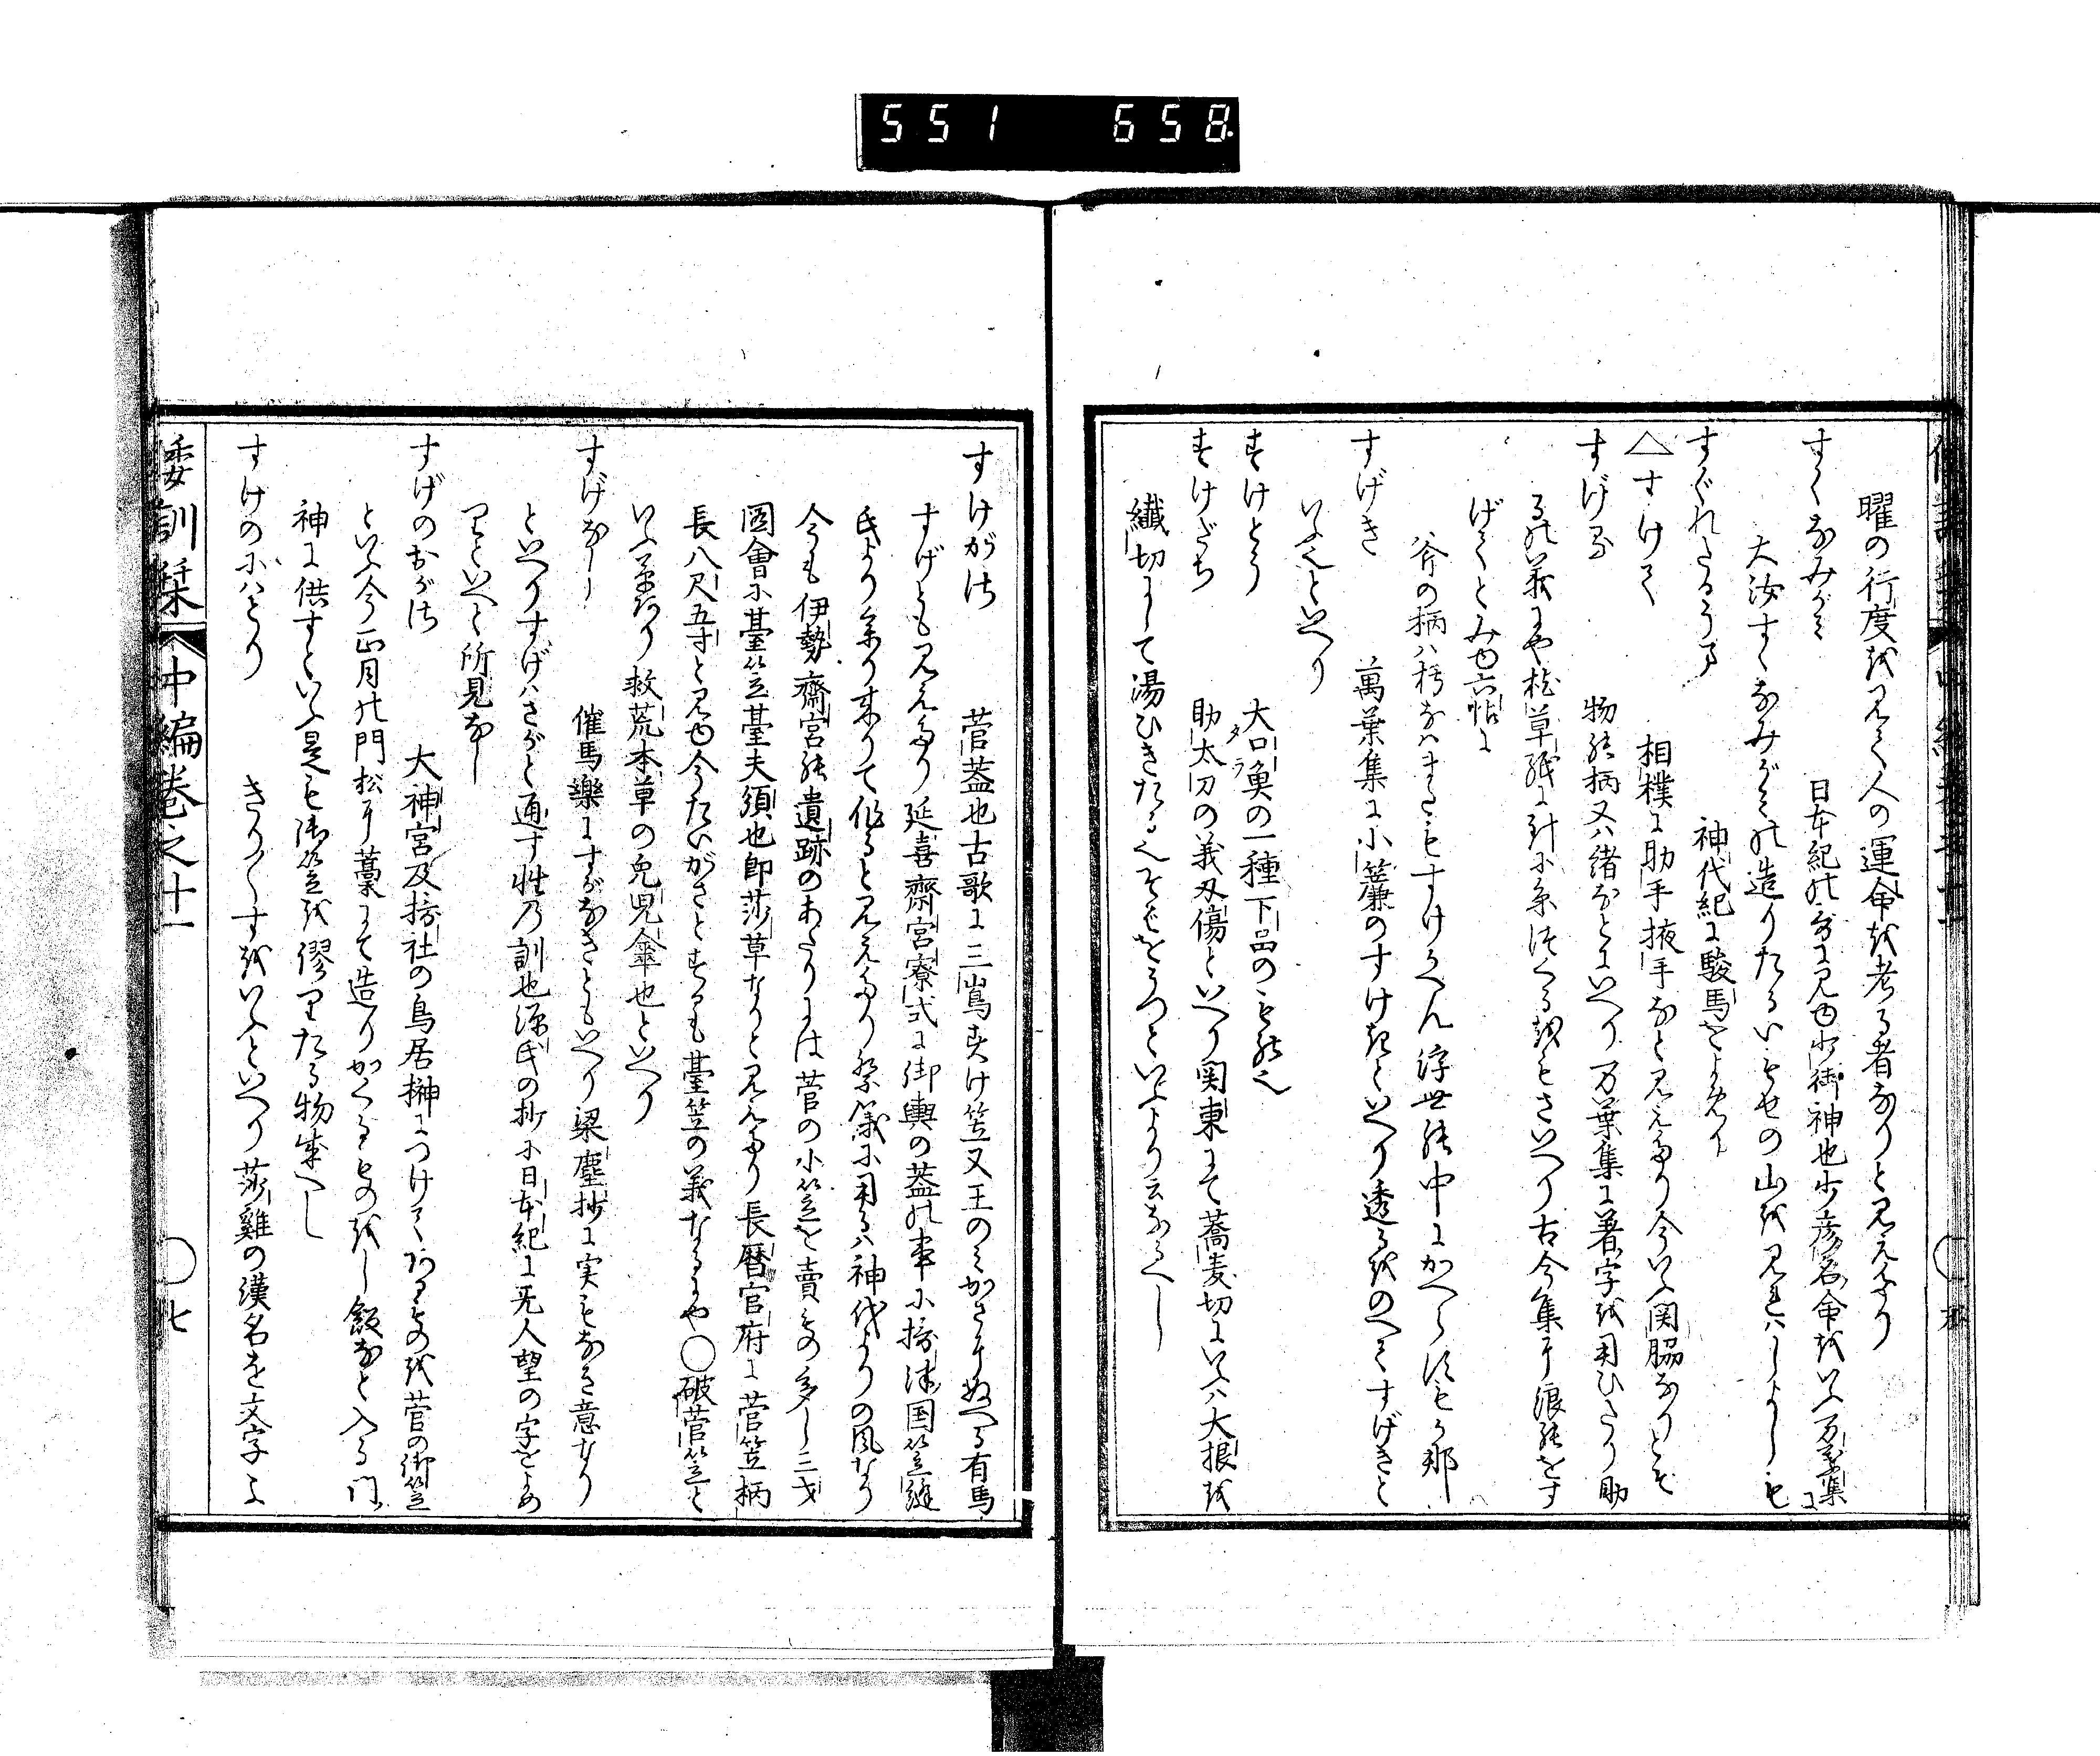 551 658
曜の行度を見て人の運命を考る者なりと見えたり
すくなみがミ 日本紀の哥に見ゆ少御神也少彦名命をいふ万葉集に
大汝すくなみがミの造りたるいもせの山を見れはしよしも
すぐれたるうま 神代紀に駿馬をよめり
△すけて 相樸に助手掖手なと見えたり今いふ関脇なりとそ
すげる 物の柄又ハ緒なとにいへり万葉集に着字を用ひたり助
るの義にや枕草紙に針に糸つくるをもさいへり古今集に浪のをす
げてとみゆ六帖に
斧の柄ハ朽なはまたもすけかへん浮世の中にかへらすもかな
すげき 萬葉集に小簾のすけきといへり透るをのへてすげきと
いふ也といへり
すけとう 大口魚の一種下品のもの也
タラ
すけだち 助太刀の義刄傷といへり関東にて蕎麦切にいふハ大根を
繊切にして湯ひきたる也そばをうつといふより云なるへし
すけがさ 菅蓋也古歌に三嶌すげ笠又王のミかさにぬへる有馬
すげとも見えたり延喜齋宮寮式に御輿の盖の事に摂津国笠縫
氏より参り来りて作ると見えたり祭儀に用るハ神代よりの風なり
今も伊勢齋宮の遺跡のあたりには菅の小笠を賣もの多し三才
圖會に䑓笠䑓夫須也即莎草なりと見えたり長暦官府に菅笠柄
長八尺五寸と見ゆ今たいがさとするも䑓笠の義なるにや○破菅笠と
いふ草あり救荒本草の兎児傘也といへり
すげなし 催馬樂にすがなきともいへり梁塵抄に実もなき意なり
といへりすげハさがと通す性の訓也源氏の抄に日本紀に无人望の字をよめ
りといへと所見なし
すげのおがさ 大神宮及摂社の鳥居榊につけてあるものを菅の御笠
といふ今正月の門松に藁にて造りかくるものをし飯なと入る門
神に供すといふ是も御笠を謬りたる物成へし
すけのにハとり きり〱すをいふといへり莎雞の漢名を文字よ
倭訓栞 中編巻之十一 ○七